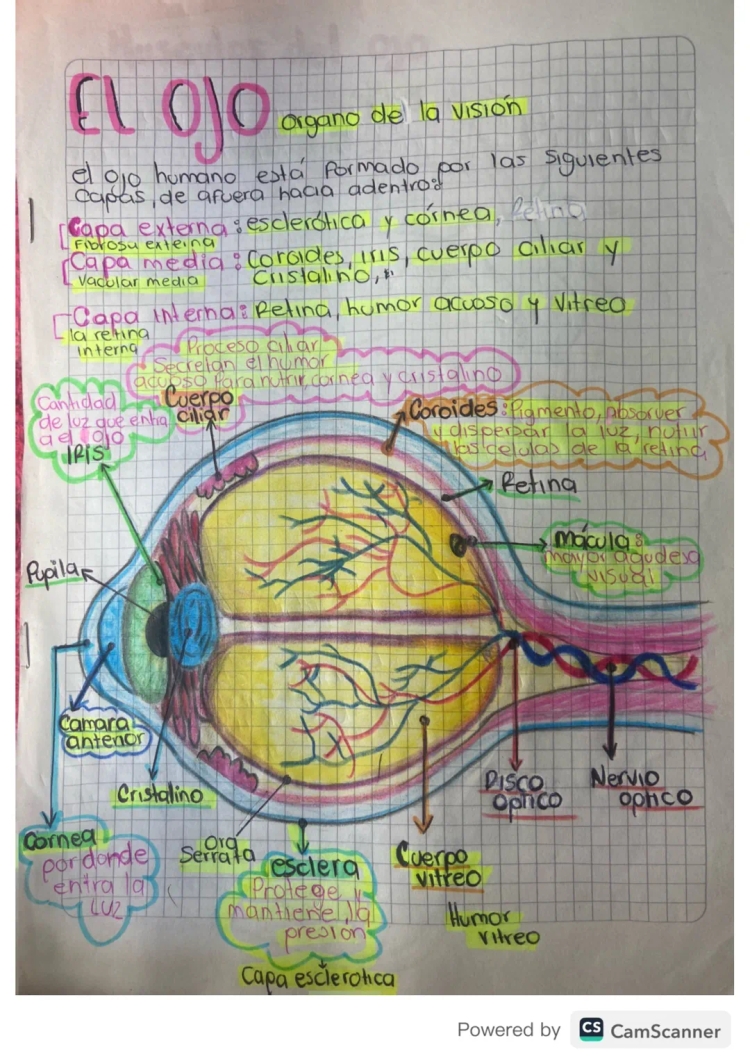 El Ojo organo de la visión
el ojo humano está formado por las siguientes
capas, de afuera hacia adentro:
Capa externa: esclerótica y córnea, Retina
Fibrosa externa
Capa media: Coroides, iris, cuerpo ciliar y
Cristalino,
Vacular media
Capa Interna: Retina, humor acuoso y Vitreo
la retina
interna
Proceso ciliar
Secretan el humor
acuoso para nutrir, cornea y cristalino
Cantidad
de luz que entra
al ojo
IRIS
Cuerpo
ciliar
Coroides: Pigmento, absorver
y dispersar la luz, nutrir
las celulas de la retina
Retina
Mácula:
mayor agudesa
visual
Pupila
Camara
anterior
Cristalino
Disco
optico
Nervio
optico
Cornea
por donde
entra la
LUZ
Ora
Serrata
esclera
Protege y
mantiene la
presion
Capa esclerotica
Cuerpo
vitreo
Humor
vitreo
Powered by CS CamScanner